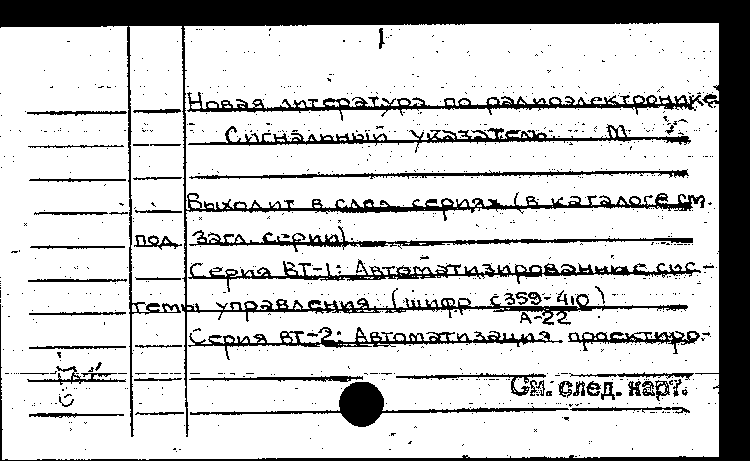 Новая литература по радиоэлектронике
Сигнальный указатель. М
Выходит в след. сериях (в каталоге см.
под загл. серии).
Серия ВТ-1: Автоматизированные сис-
темы управления. (шифр с359-410)
А-22
Серия ВТ-2: Автоматизация проектиро-
См. след. карт.